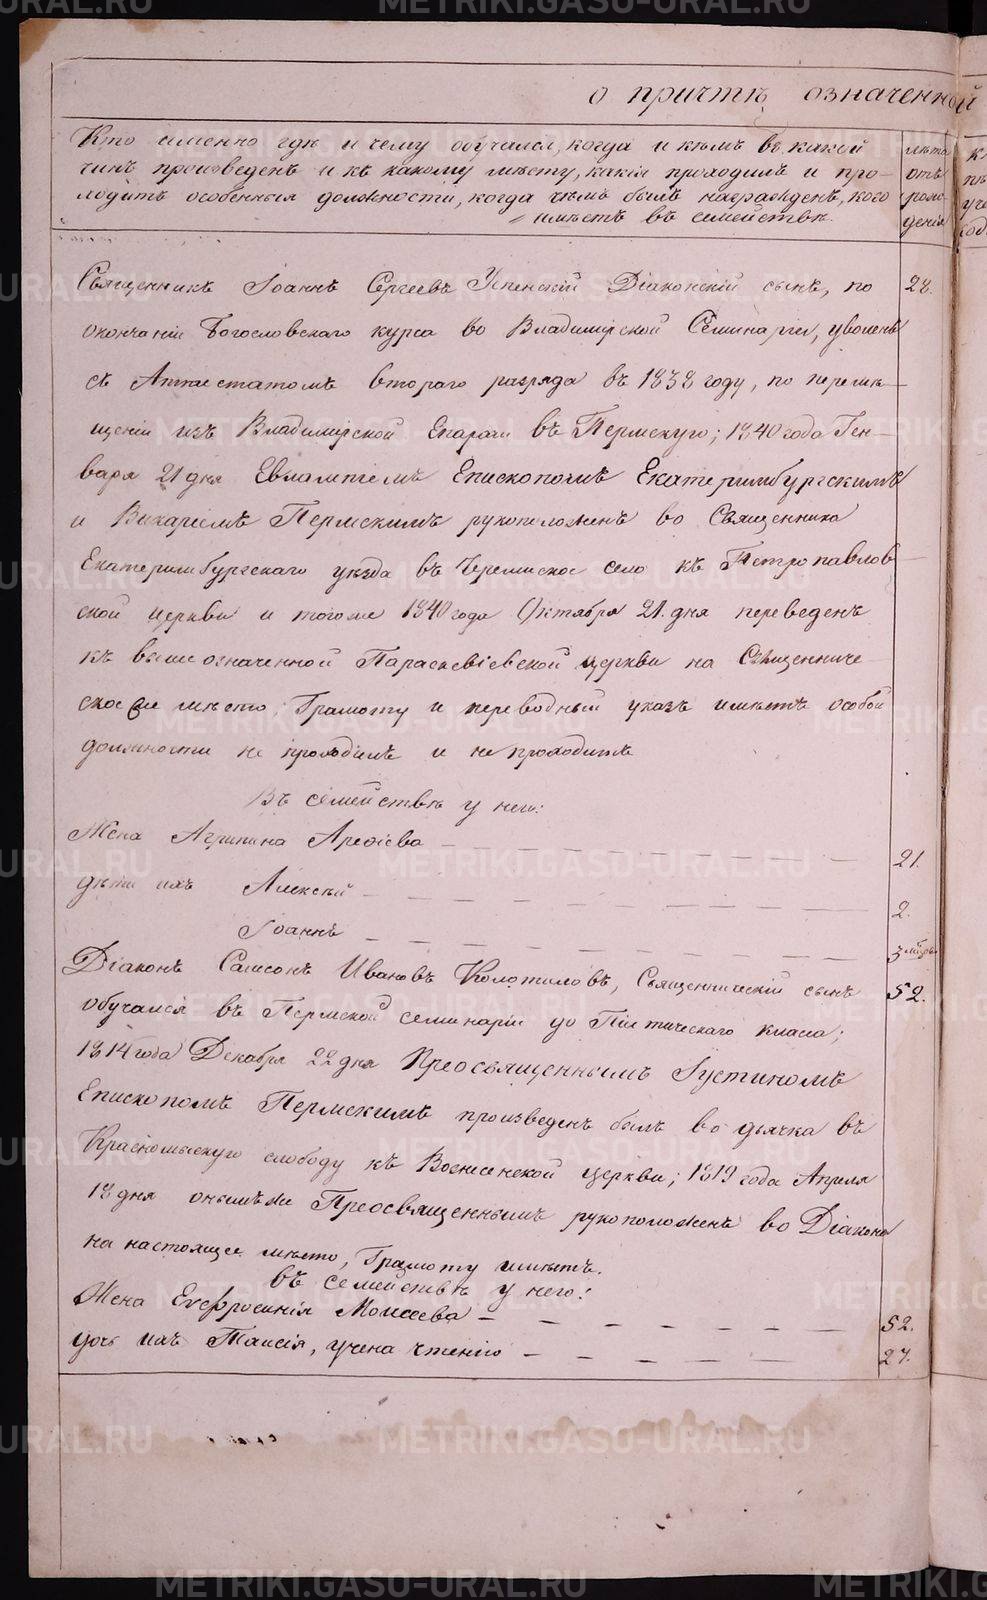 о причтѣ означенной
Кто именно гдѣ и чему обучался, когда и кѣмъ въ какой
чинъ произведенъ и къ какому мѣсту, какія проходилъ и про-
ходитъ особенныя должности, когда чѣмъ былъ награжденъ, кого
имѣетъ въ семействѣ.
лѣта
отъ
рож-
денія
Священникъ Іоаннъ Сергеевъ Успенскій Діаконскій сынъ, по
28.
окончаніи Богословскаго курса во Владимірской Семинаріи, уволенъ
съ Аттестатомъ втораго разряда въ 1838 году, по перемѣ-
щеніи изъ Владимірской Епархіи въ Пермскую; 1840 года Ген-
варя 21 дня Евлампіемъ Епископомъ Екатеринбургскимъ
и Викаріемъ Пермскимъ рукоположенъ во Священника
Екатеринбургскаго уѣзда въ Черемиское село къ Петропавлов-
ской церкви и тогоже 1840 года Октября 21. дня переведенъ
къ вышеозначенной Параскевіевской церкви на Священниче-
ское мѣсто; Грамоту и переводный указъ имѣетъ особой
должности не проходилъ и не проходитъ
Въ семействѣ у него:
Жена Агрипина Арефіева
21.
дѣти ихъ Алексѣй
2.
Іоаннъ
3 мѣс.
Діаконъ Самсонъ Ивановъ Колотиловъ, Священническій сынъ
52.
обучался въ Пермской семинаріи до Піитическаго класса;
1814 года Декабря 22 дня Преосвященнымъ Іустиномъ
Епископомъ Пермскимъ произведенъ былъ во дьячка въ
Красномыскую слободу къ Вознесенской церкви; 1819 года Апреля
18 дня онымъже Преосвященнымъ рукоположенъ во Діакона
на настоящее мѣсто, Грамоту имѣетъ.
въ семействѣ у него:
Жена Евфросинія Моисеева
52.
дочь ихъ Таисія, учена чтенію
27.
METRIKI.GASO-URAL.RU